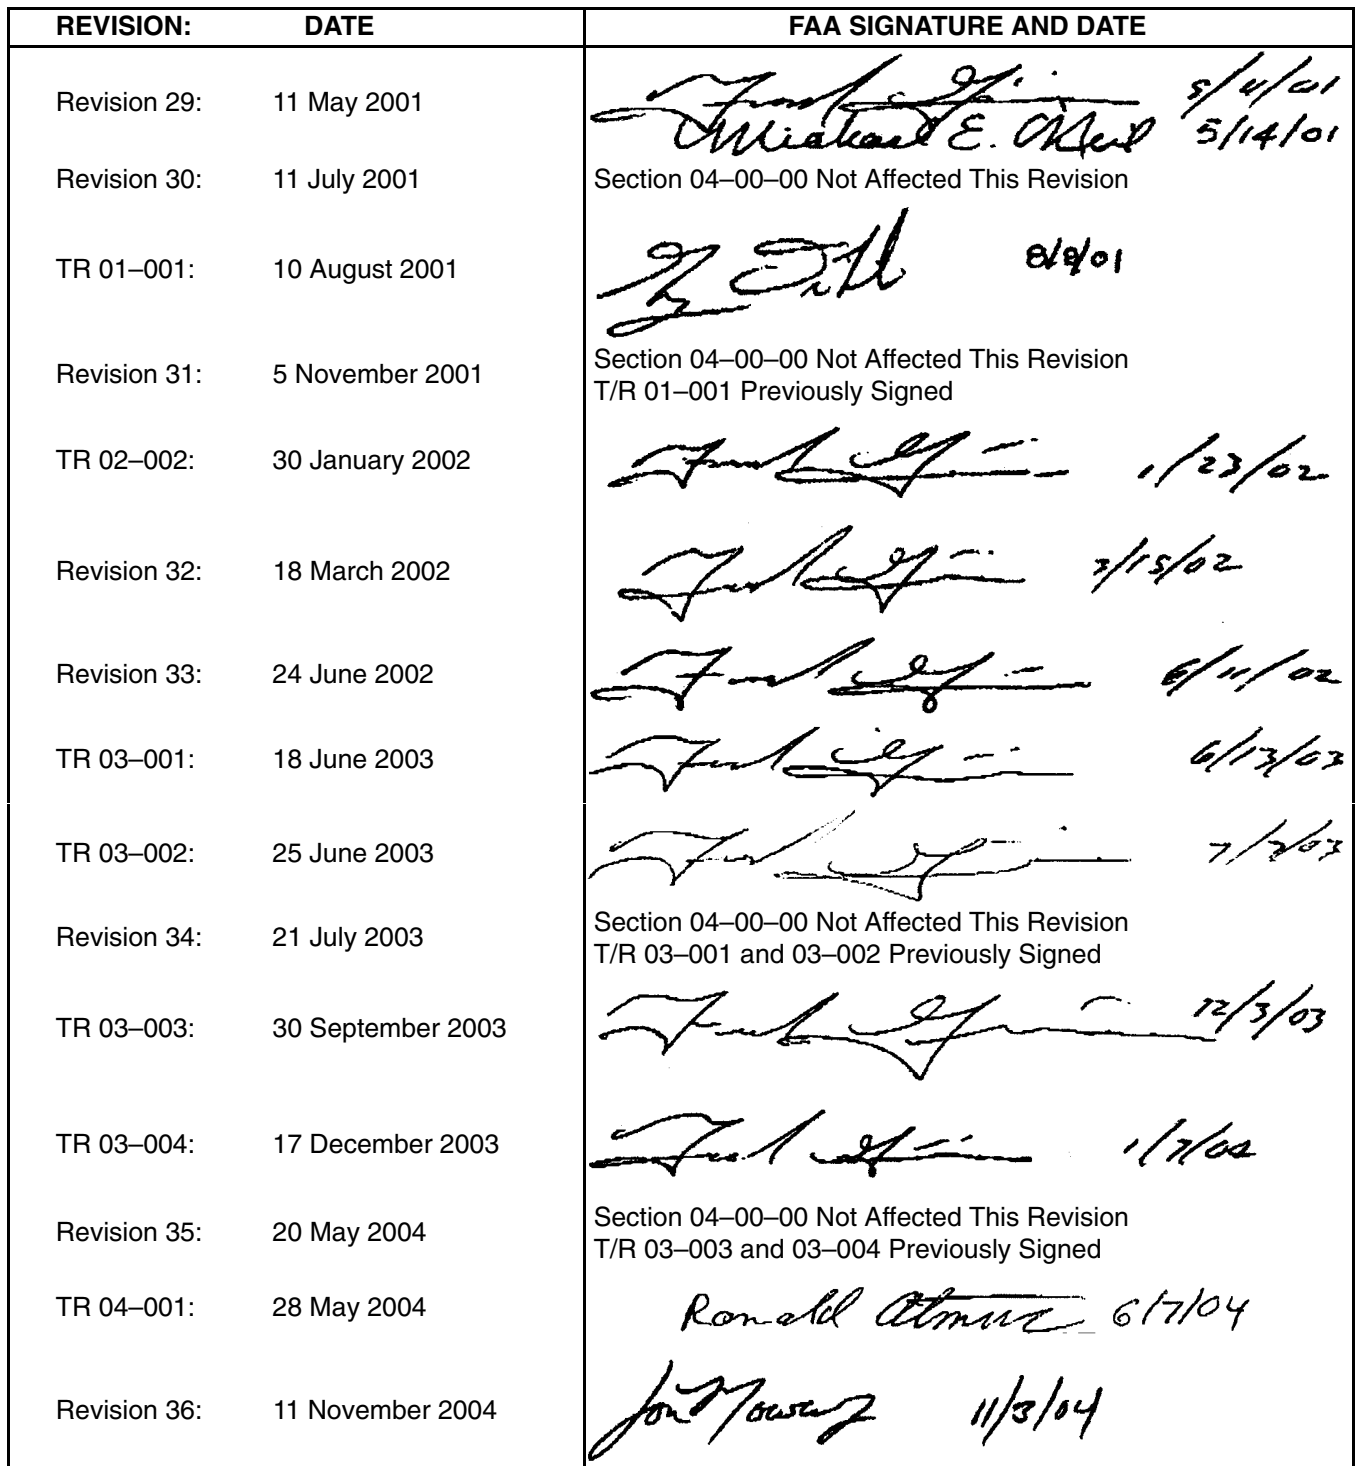 REVISION: DATE FAA SIGNATURE AND DATE
Revision 29: 11 May 2001 5/4/01
Michael E. O'Neil 5/14/01
Revision 30: 11 July 2001 Section 04–00–00 Not Affected This Revision
TR 01–001: 10 August 2001 8/8/01
Revision 31: 5 November 2001 Section 04–00–00 Not Affected This Revision
T/R 01–001 Previously Signed
TR 02–002: 30 January 2002 1/23/02
Revision 32: 18 March 2002 3/15/02
Revision 33: 24 June 2002 6/11/02
TR 03–001: 18 June 2003 6/13/03
TR 03–002: 25 June 2003 7/2/03
Revision 34: 21 July 2003 Section 04–00–00 Not Affected This Revision
T/R 03–001 and 03–002 Previously Signed
TR 03–003: 30 September 2003 12/3/03
TR 03–004: 17 December 2003 1/7/04
Revision 35: 20 May 2004 Section 04–00–00 Not Affected This Revision
T/R 03–003 and 03–004 Previously Signed
TR 04–001: 28 May 2004 Ronald 6/7/04
Revision 36: 11 November 2004 Jon 11/3/04